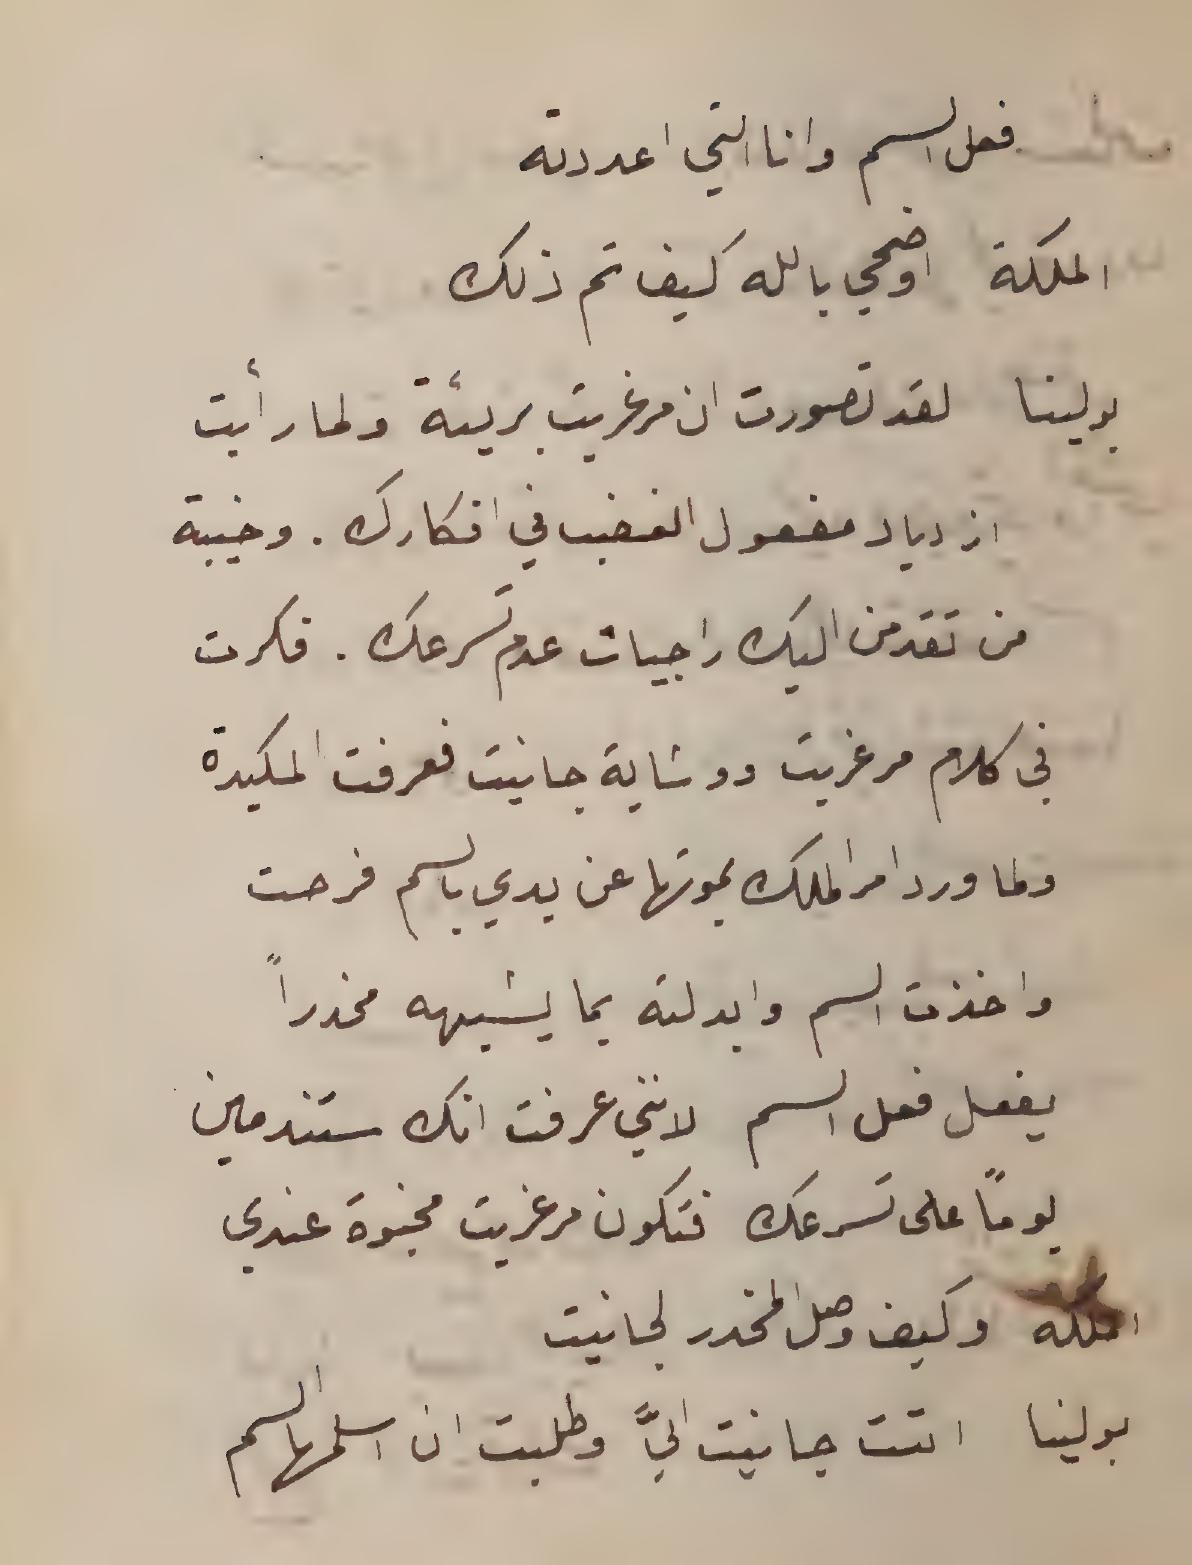 فعل السم وانا التي اعددته
الملكة اوضحي بالله كيف تم ذلك
بولينا لقد تصورت ان مرغريت بريئة ولما رأيت
ازدياد مفعول الغضب في افكارك . وخيبة
من تقدمن اليك راجيات عدم تسرعك . فكرت
في كلام مرغريت ووشاية جانيت فعرفت المكيدة
ولما ورد امر الملك بموتها عن يدي بالسم فرحت
واخذت السم وابدلته بما يشبهه مخدراً
يفعل فعل السم لانني عرفت انك ستندمين
يوماً على تسرعك فتكون مرغريت مخبوة عندي
الملكة وكيف وصل المخدر لجانيت
بولينا اتت جانيت اليَّ وطلبت ان اسلمها السم